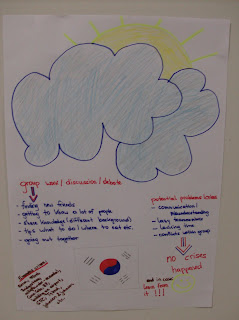 group work / discussion / debate
- finding new friends
- getting to know a lot of people
- share knowledge (different background)
- tips what to do / where to eat etc.
- going out together
potential problems/crises
- communication /
misunderstanding
- lazy teammates
- lacking time
- conflicts within group
NO crises
happened
and in case
learn from
it !!!